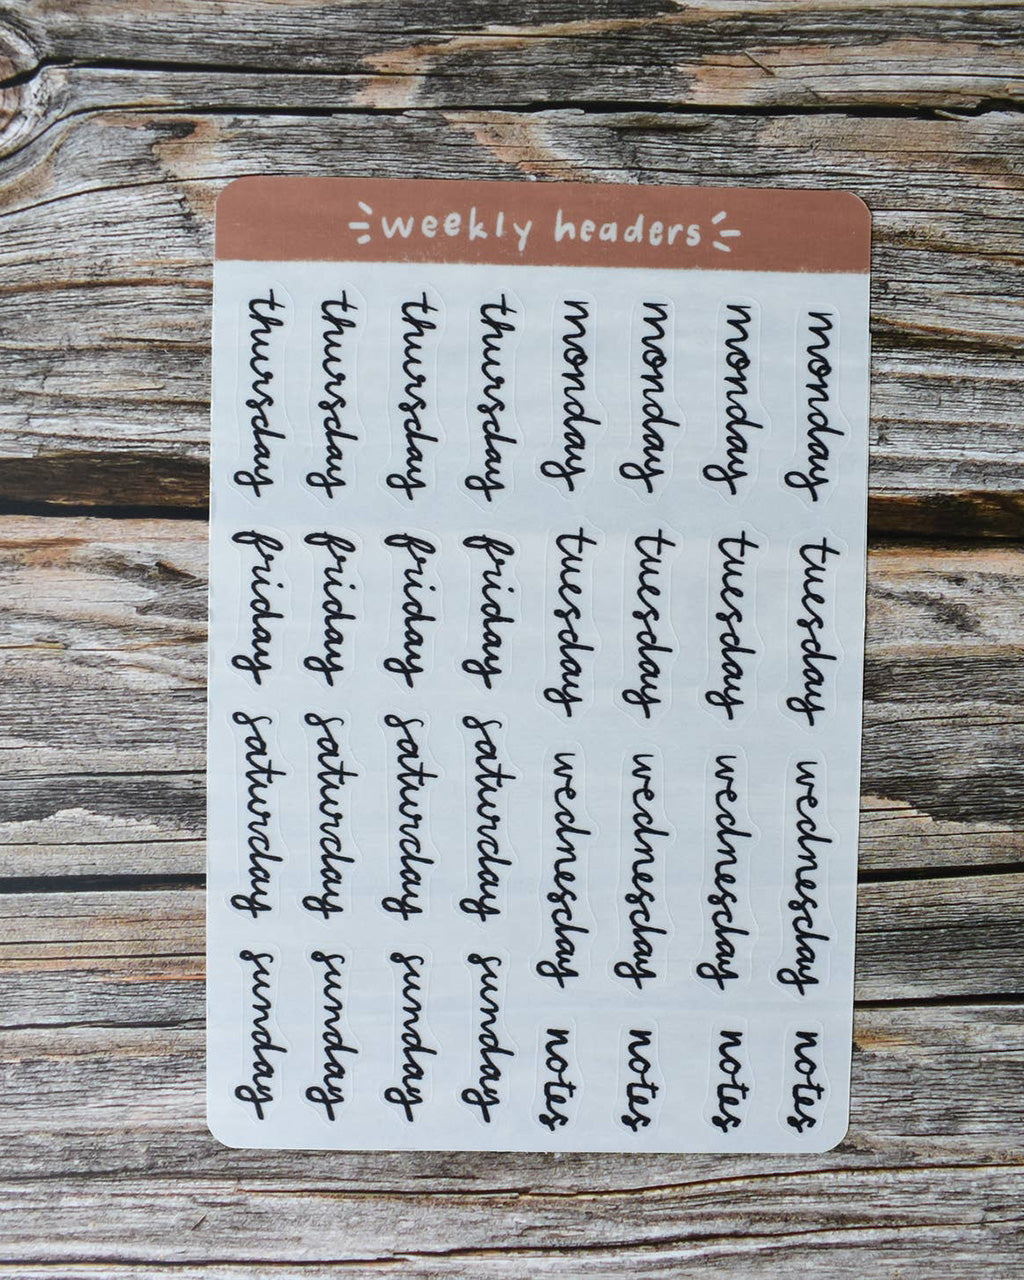 weekly headers
monday tuesday wednesday notes
monday tuesday wednesday notes
monday tuesday wednesday notes
monday tuesday wednesday notes
thursday friday saturday sunday
thursday friday saturday sunday
thursday friday saturday sunday
thursday friday saturday sunday